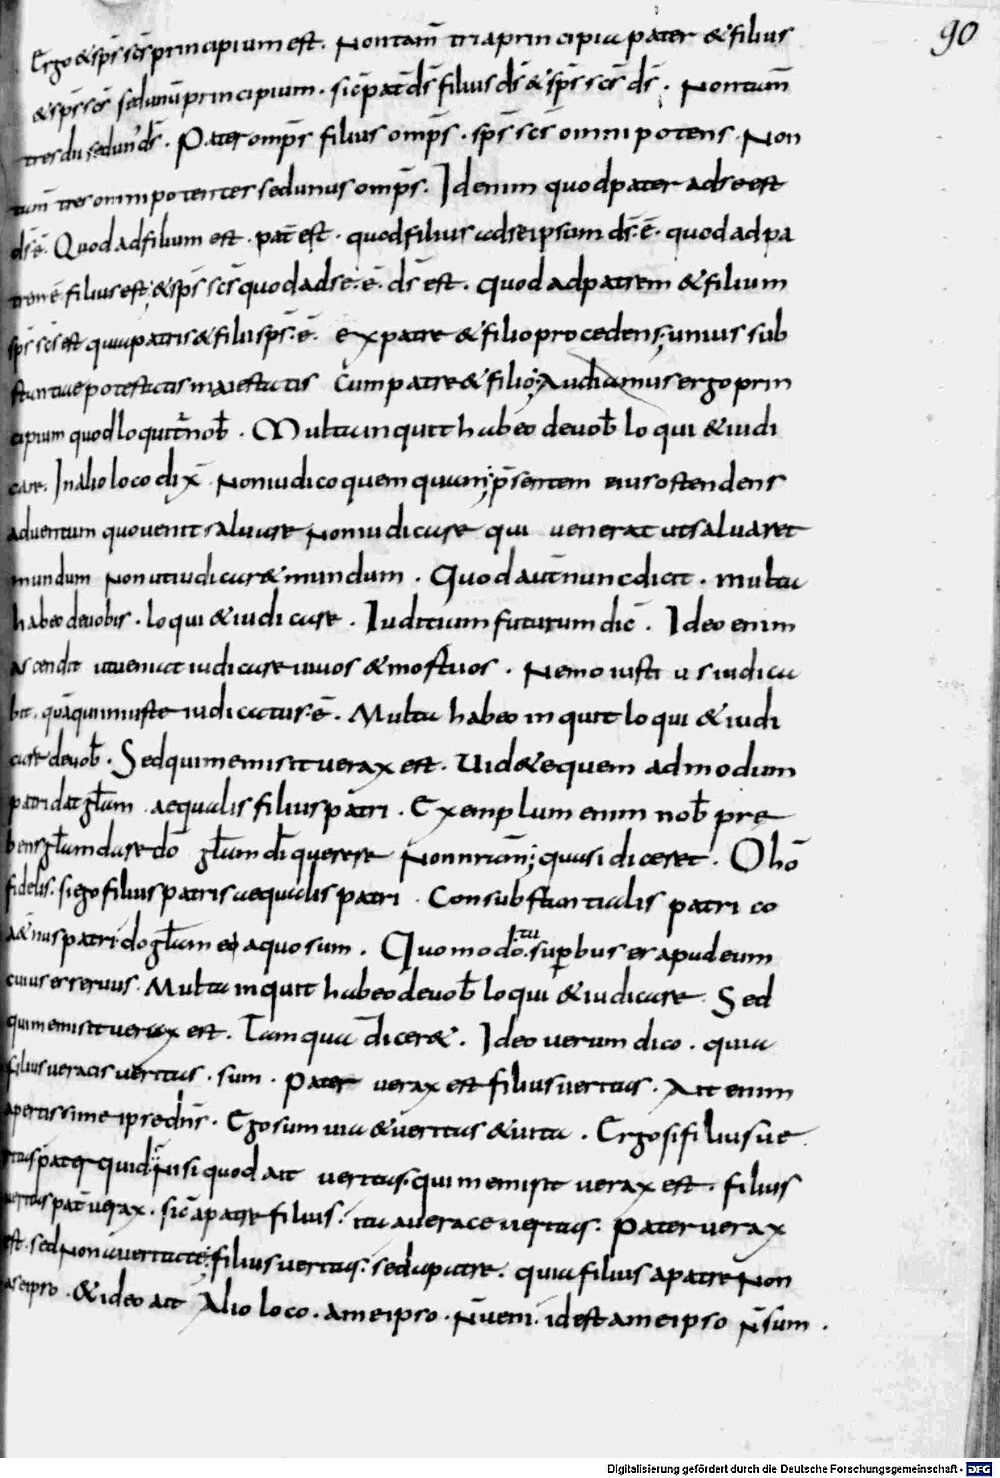 90
Ergo & sp̄s sc̄s principium est. Non tam̄ tria principia pater & filius
& sp̄s sc̄s sed unū principium. sic̄ pat̄ d̄s filius d̄s & sp̄s sc̄s d̄s. Non tam̄
tres dii sed un' d̄s. Pater omp̄s filius omp̄s. sp̄s sc̄s omnipotens. Non
tam̄ tres omnipotentes sed unus omp̄s. Id enim quod pater ad se est
d̄s ē. Quod ad filium est. pat̄ est. quod filius ad se ipsum d̄s ē. quod ad pa
trem ē filius est; & sp̄s sc̄s quod ad se. ē. d̄s est. quod ad patrem & filium
sp̄s sc̄s est quia patris & filii sp̄s. ē. ex patre & filio procedens; unius sub
stantiae potestatis maiestatis cum patre & filio; Audiamus ergo prin
cipium quod loquit̄ nob̄. Multa inquit habeo de uob̄ loqui & iudi
care. In alio loco dix̄. Non iudico quemquam; p̄sentem eius ostendens
aduentum quo uenit saluare Non iudicare qui uenerat ut saluaret
mundum Non ut iudicar& mundum. Quod aut̄ nunc dicit. multa
habeo de uobis. loqui & iudicare. Iuditium futurum dic̄. Ideo enim
ascendit ut ueniat iudicare uiuos & mortuos. Nemo iustius iudica
bit. quā qui iniuste iudicatus. ē. Multa habeo inquit loqui & iudi
care de uob̄. Sed qui me misit uerax est. Uid&e quem admodum
patri dat gl̄am aequalis filius patri. Exemplum enim nob̄ prę
bens gl̄am dare dō gl̄am dī querere Non nr̄am; quasi diceret. O hō
fidelis. si ego filius patris aequalis patri. Consubstantialis patri co
a&nus patri do gl̄am eo a quo sum. Quomodo tu sup̱bus es apud eum
cuius es seruus. Multa inquit habeo de uob̄ loqui & iudicare. Sed
qui me misit uerax est. Tam qua dicer&. Ideo uerum dico. quia
filius ueracis ueritas. sum. Pater uerax est filius ueritas. Ait enim
apertissime ipse dn̄s. Ego sum uia & ueritas & uita. Ergo si filius ue
ritas. pater quid. Nisi quod ait ueritas. qui me misit uerax est. filius
ueritas pat̄ uerax. sic̄ a patre filius. ita a uerace ueritas. Pater uerax
est. sed Non a ueritate; filius ueritas. sed a patre. quia filius a patre Non
a se ipso. & ideo ait Alio loco. a me ipso. N̄ ueni. id est a me ipso N̄ sum.
Digitalisierung gefördert durch die Deutsche Forschungsgemeinschaft - DFG